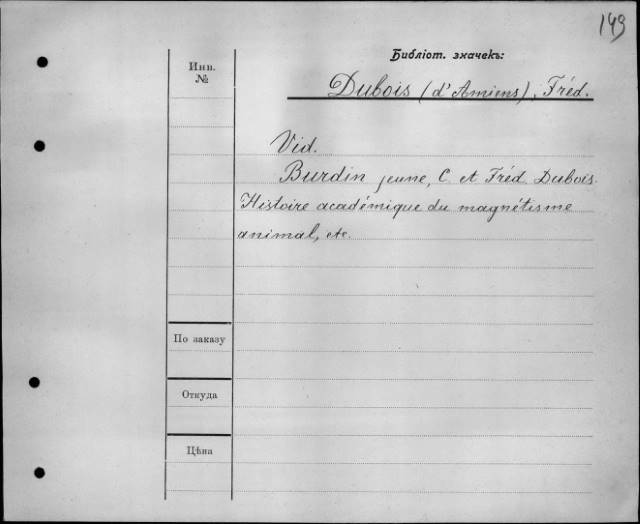 149
Библіот. значекъ:
Инв.
№
Dubois (d'Amiens), Fréd.
Vid.
Burdin jeune, C. et Fréd. Dubois.
Histoire académique du magnétisme
animal, etc.
По заказу
Откуда
Цѣна